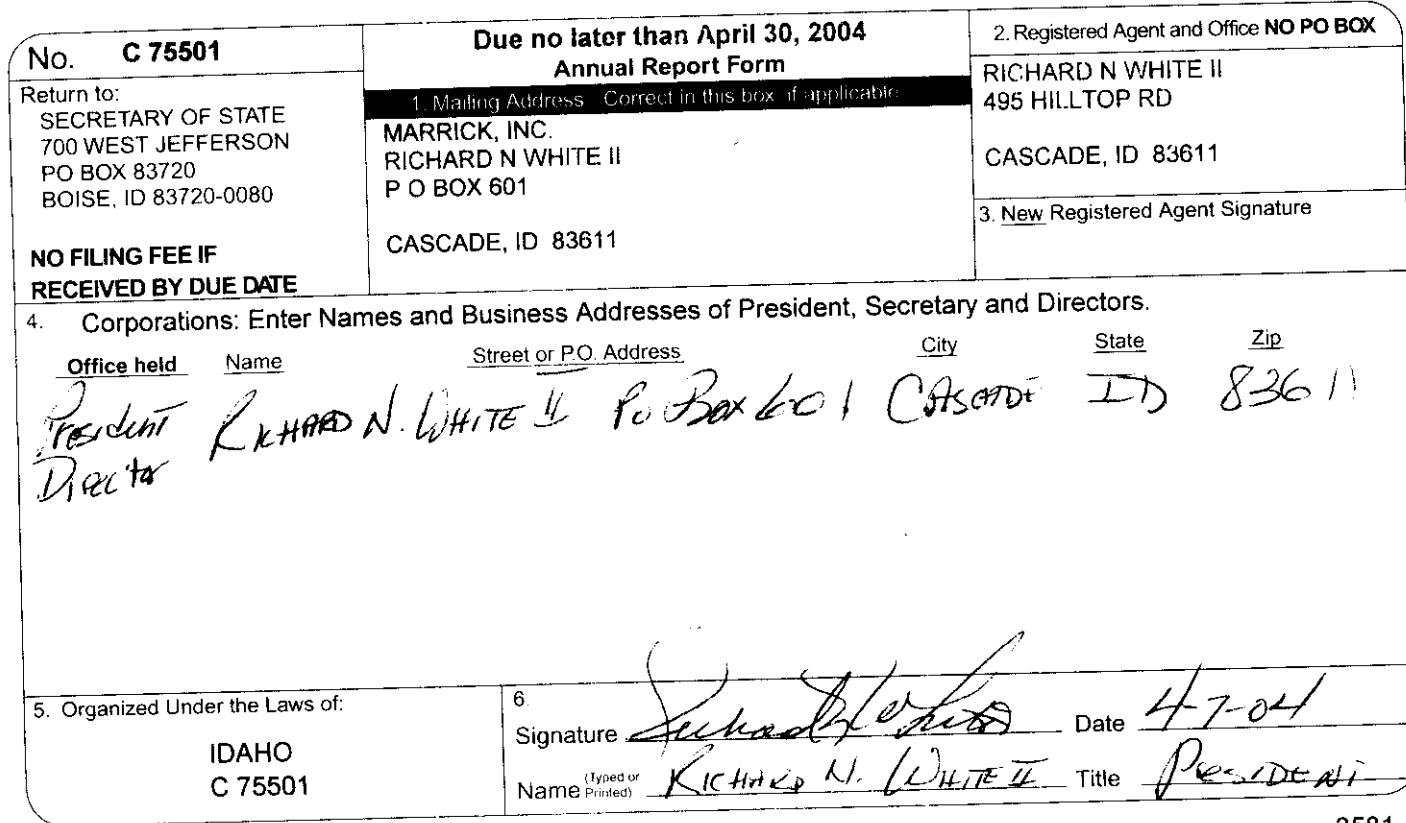 No. C 75501
Return to:
SECRETARY OF STATE
700 WEST JEFFERSON
PO BOX 83720
BOISE, ID 83720-0080
NO FILING FEE IF
RECEIVED BY DUE DATE
Due no later than April 30, 2004
Annual Report Form
1. Mailing Address Correct in this box if applicable
MARRICK, INC.
RICHARD N WHITE II
P O BOX 601
CASCADE, ID 83611
2. Registered Agent and Office NO PO BOX
RICHARD N WHITE II
495 HILLTOP RD
CASCADE, ID 83611
3. New Registered Agent Signature
4. Corporations: Enter Names and Business Addresses of President, Secretary and Directors.
Office held Name Street or P.O. Address City State Zip
President RICHARD N. WHITE II PO Box 601 CASCADE ID 83611
Director
5. Organized Under the Laws of:
IDAHO
C 75501
6.
Signature Richard N White Date 4-7-04
Name (Typed or Printed) RICHARD N. WHITE II Title PRESIDENT